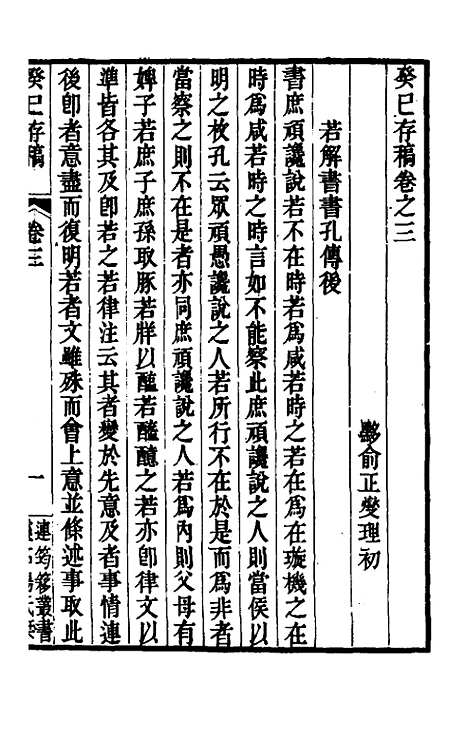 癸巳存稿卷之三
黟俞正燮理初
若解書書孔傳後
書庶頑讒說若不在時若爲咸若時之若在爲在璇機之在
時爲咸若時之時言如不能察此庶頑讒說之人則當侯以
明之枚孔云眾頑愚讒說之人若所行不在於是而爲非者
當察之則不在是者亦同庶頑讒說之人若爲內則父母有
婢子若庶子庶孫取豚若牂以醢若醯醷之若亦卽律文以
準皆各其及卽若之若律注云其者變於先意及者事情連
後卽者意盡而復明若者文雖殊而會上意並條述事取此
癸巳存稿
卷三
一
連筠簃叢書
楊氏